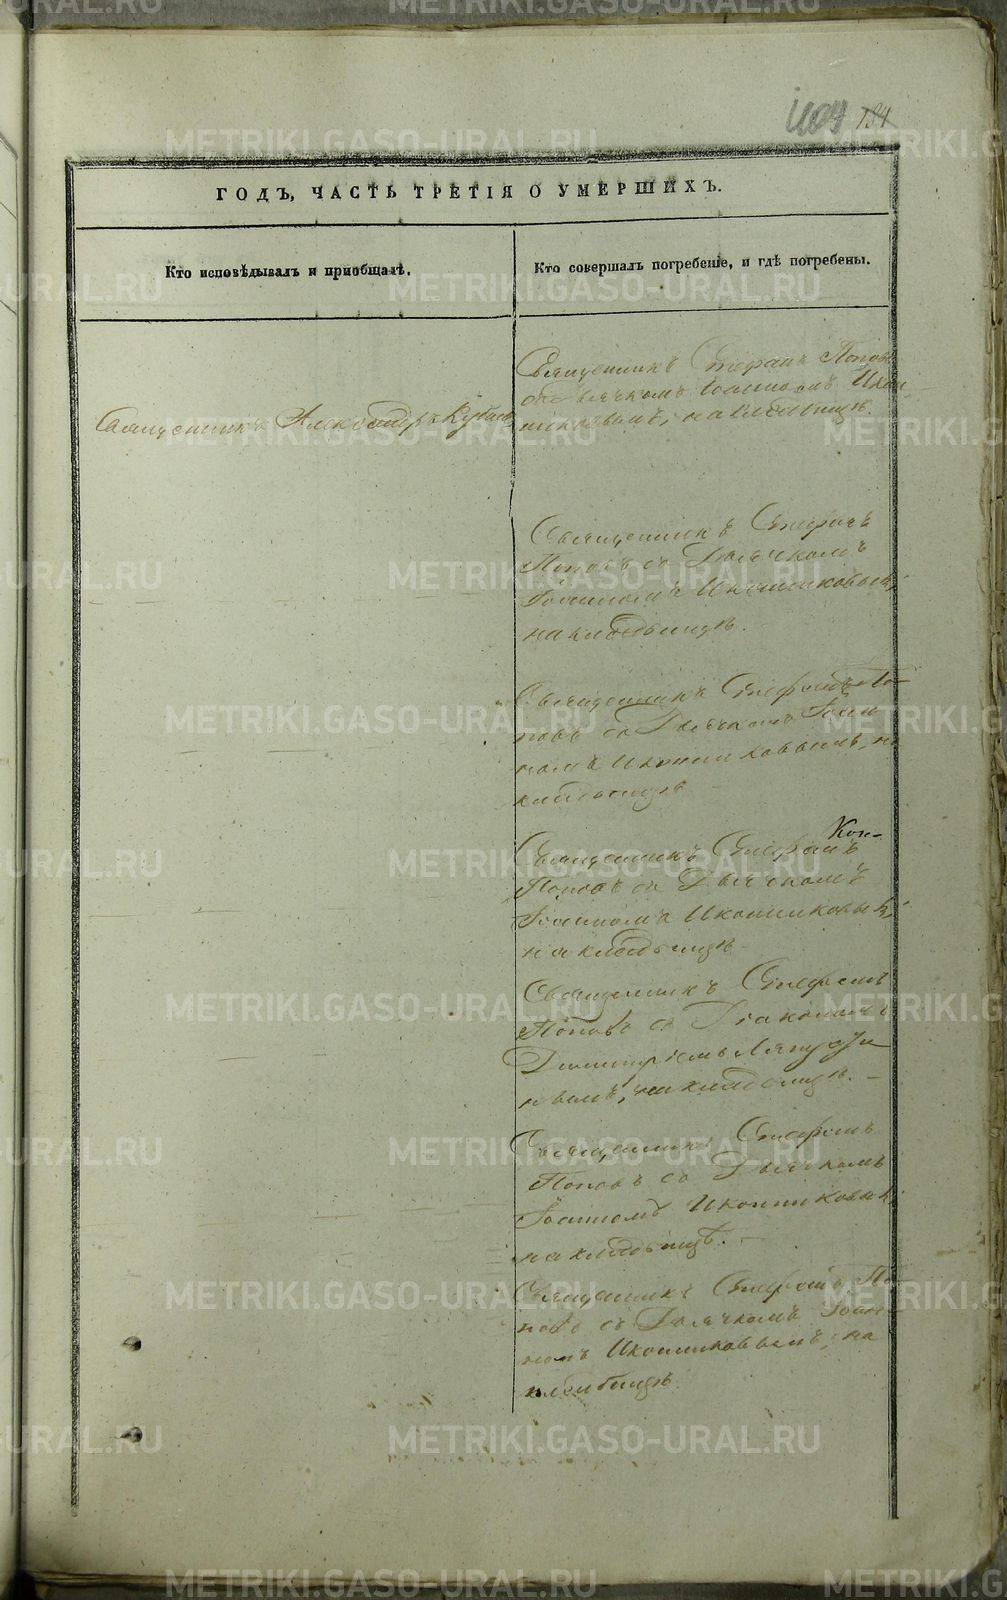 194
ГОДЪ, ЧАСТЬ ТРЕТІЯ О УМЕРШИХЪ.
Кто исповѣдывалъ и пріобщалъ.
Кто совершалъ погребеніе, и гдѣ погребены.
Священникъ Стефанъ Поповъ
съ Дьячкомъ Іоанномъ Икон-
никовымъ, на кладбищѣ.
Священникъ Александръ
Священникъ Стефанъ
Поповъ съ Дьячкомъ
Іоанномъ Иконниковымъ,
на кладбищѣ.
Священникъ Стефанъ По-
повъ съ Дьячкомъ Іоан-
номъ Иконниковымъ, на
кладбищѣ
Кон-
Священникъ Стефанъ
Поповъ съ Дьячкомъ
Іоанномъ Иконниковымъ,
на кладбищѣ
Священникъ Стефанъ
Поповъ съ Діакономъ
Димитріемъ
на кладбищѣ.
Священникъ Стефанъ
Поповъ съ Дьячкомъ
Іоанномъ Иконниковымъ
на кладбищѣ.
Священникъ Стефанъ По-
повъ съ Дьячкомъ Іоан-
номъ Иконниковымъ, на
кладбищѣ.
METRIKI.GASO-URAL.RU